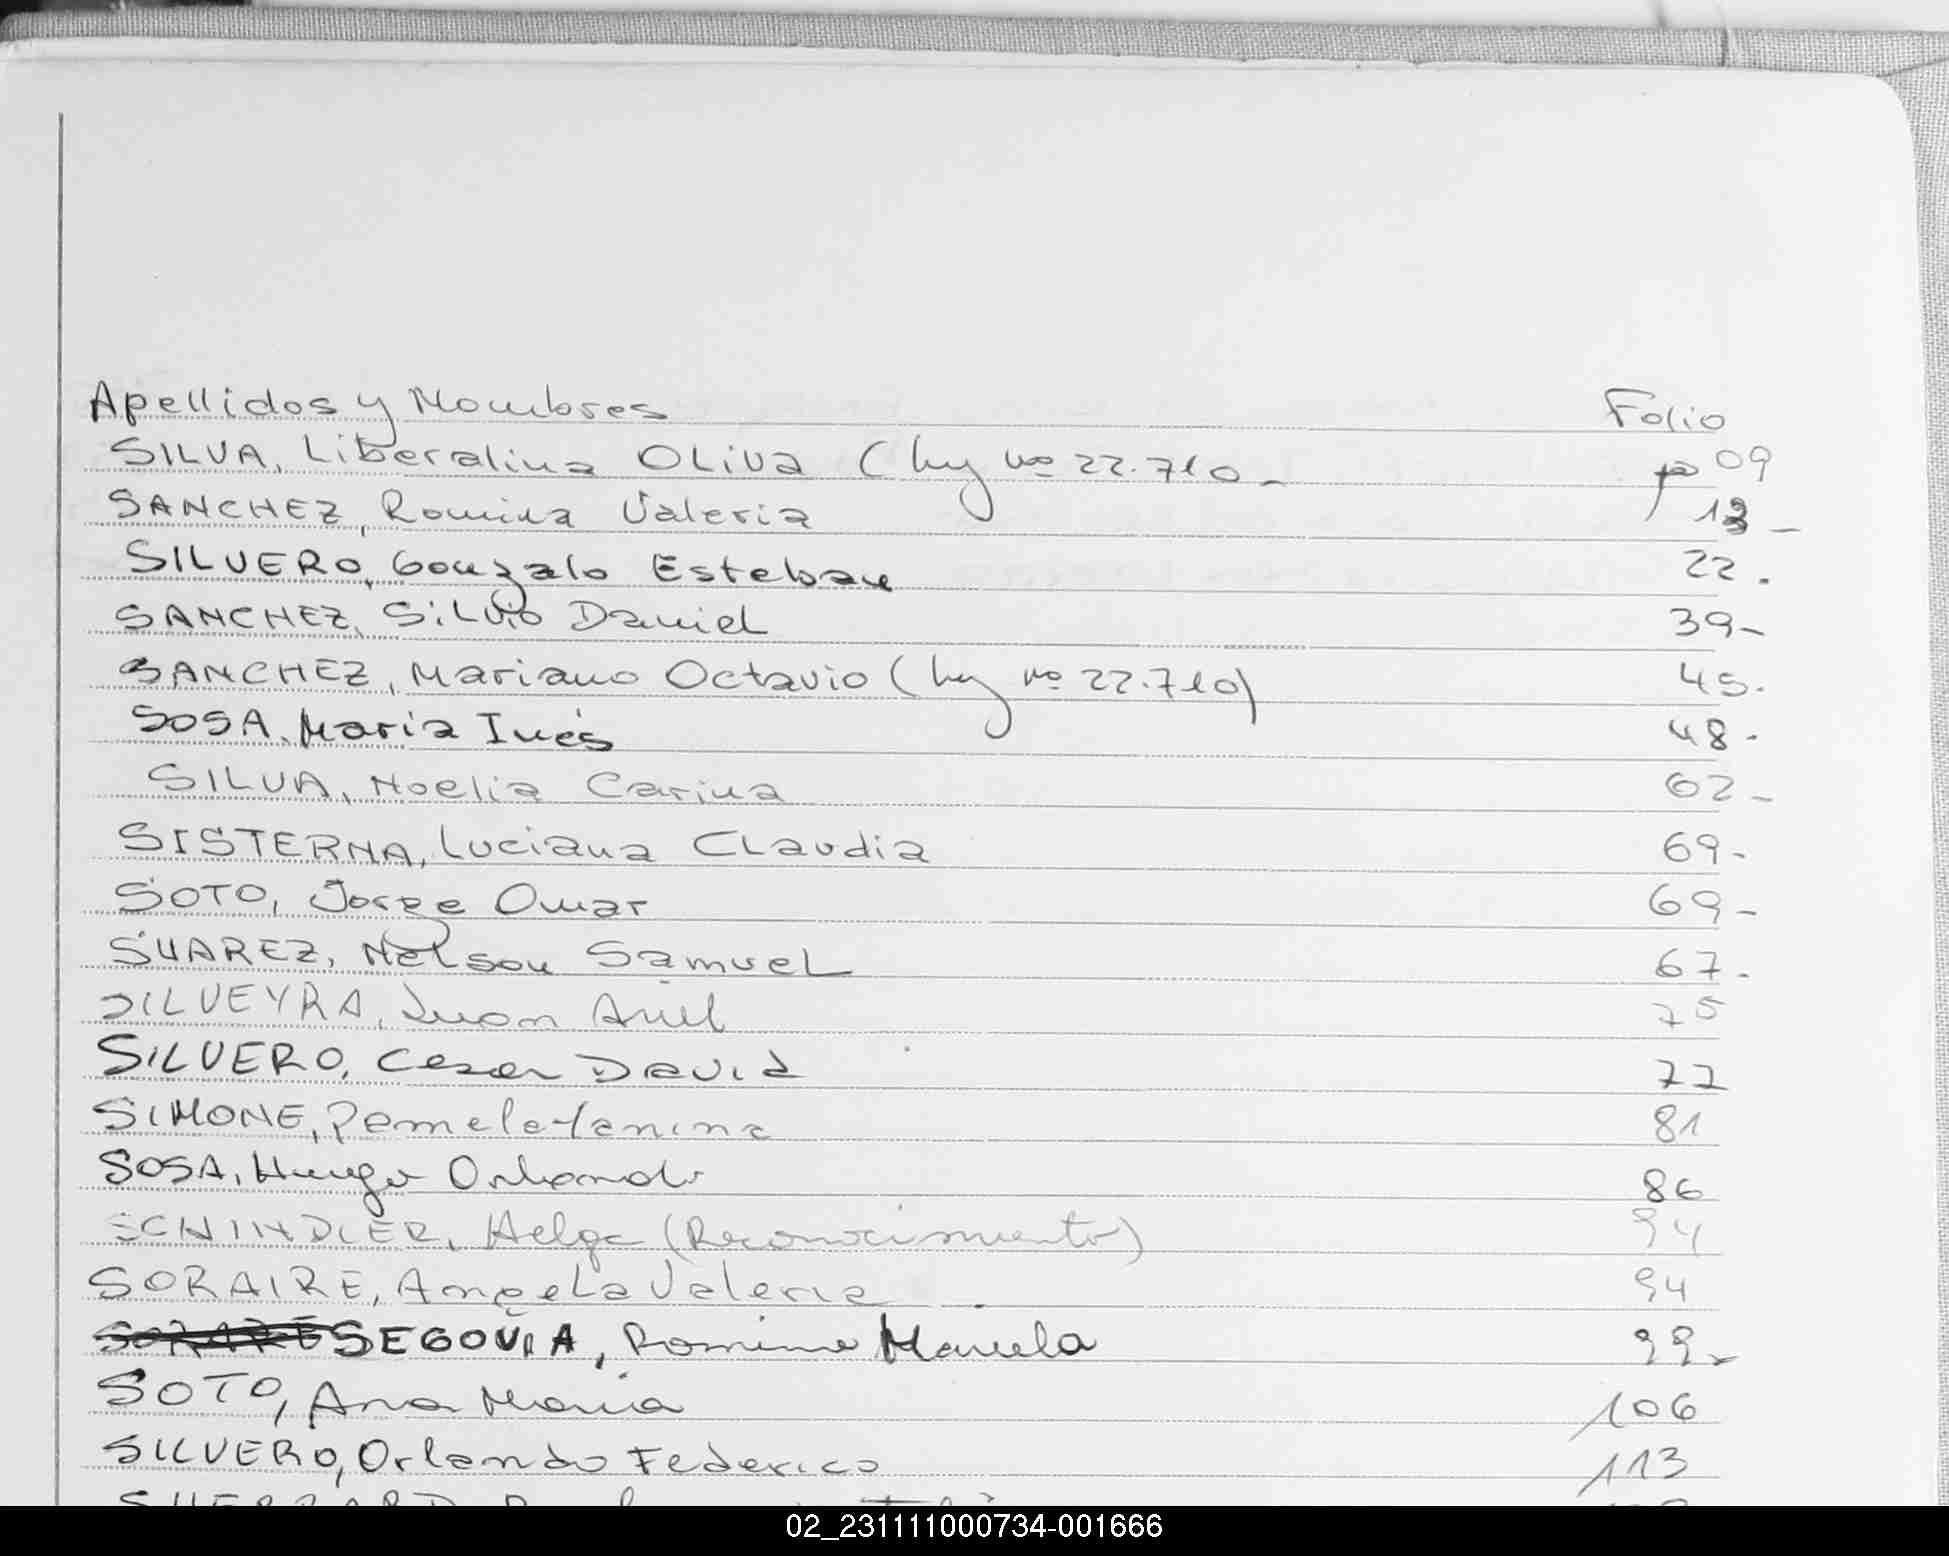 Apellidos y Nombres Folio
SILVA, Liberalina OLiva (ley nº 22.710_ 09
SANCHEZ, Romina Valeria 13 -
SILVERO, Gonzalo Esteban 22.
SANCHEZ, SiLvio DanieL 39-
SANCHEZ, Mariano Octavio (ley nº 22.710) 45.
SOSA, María Inés 48-
SILVA, Noelia Carina 62-
SISTERNA, Luciana CLaudia 69-
SOTO, Jorge Omar 69-
SUAREZ, NeLson SamueL 67.
SILVEYRA, Juan Ariel 75
SILVERO, Cesar David 77
SIMONE, Pamela Yanina 81
SOSA, Hugo Orlando 86
SCHINDLER, Helga (Reconocimiento) 94
SORAIRE, AngeLa Valeria 94
SEGOVIA, Romina Mariela 99-
SOTO, Ana María 106
SILVERO, Orlando Federico 113
02_231111000734-001666